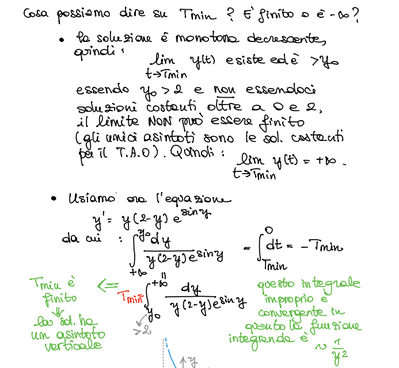 Cosa possiamo dire su Tmin ? È finito o è -∞?
• la soluzione è monotona decrescente,
quindi: lim y(t) esiste ed è > y₀
t→Tmin
essendo y₀ > 2 e non essendoci
soluzioni costanti oltre a 0 e 2,
il limite NON può essere finito
(gli unici asintoti sono le sol. costanti
per il T.A.O). Quindi: lim y(t) = +∞.
t→Tmin
• Usiamo ora l'equazione
y' = y(2-y) e^{sin y}
da cui : ∫_{+∞}^{y₀} dy / y(2-y)e^{sin y} = ∫_{Tmin}^{0} dt = - Tmin
Tmin è finito
⇓
la sol. ha
un asintoto
verticale
<=
Tmin = ∫_{y₀}^{+∞} dy / y(2-y)e^{sin y}
>2
questo integrale
improprio è
convergente in
quanto la funzione
integranda è
~ 1/y²
↑y